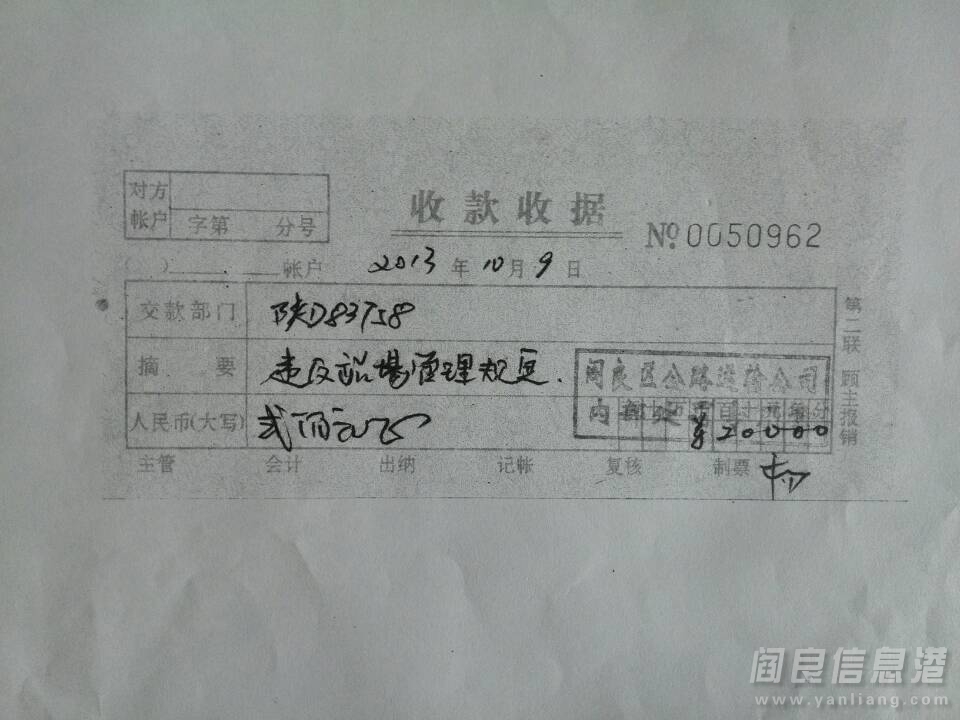 对方
帐户
字第 分号
收款收据
№ 0050962
( ) 帐户 2013 年 10 月 9 日
交款部门 陕D83758
摘 要 违反站场管理规定.
人民币(大写) 贰佰元正
阎良区公路运输公司
内部
百 十 元 角 分
¥20000
主管 会计 出纳 记帐 复核 制票
第二联 顾主报销
阎良信息港
www.yanliang.com